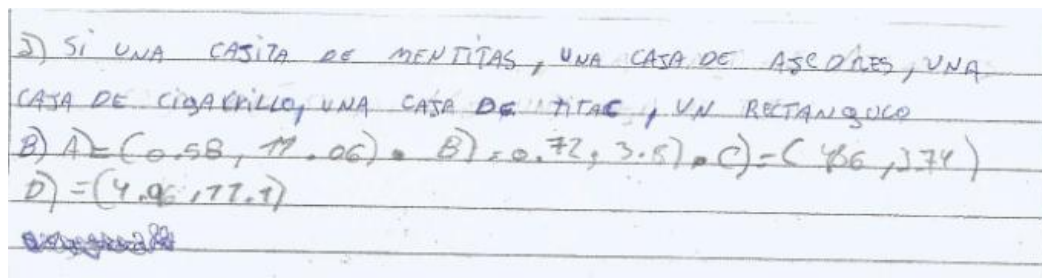 2) Si UNA CAJITA DE MENTITAS, UNA CAJA DE , UNA
CAJA DE CIGARRILLO, UNA CAJA DE TITAC, UN RECTANGULO
B) A)=(0.58, 11.06). B)=0.72, 3.8). C)=( , 3.74)
D)=(4.96, 11.1)